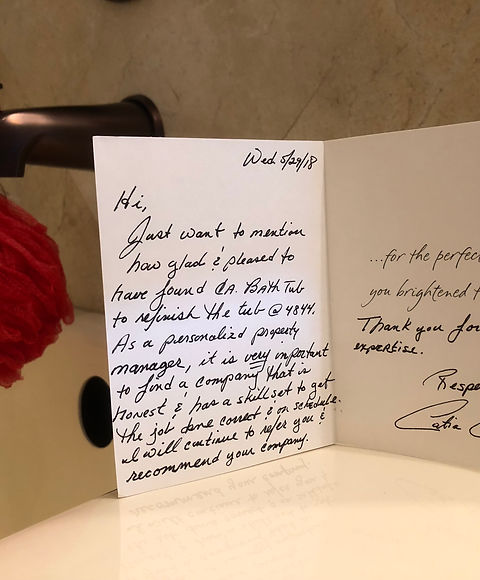 Wed 5/29/18
Hi,
Just want to mention
how glad & pleased to
have found CA. BAth Tub
to refinish the tub @ 4844.
As a personalized property
manager, it is very important
to find a company that is
Honest & has a skill set to get
the job done correct & on schedule.
I will continue to refer you &
recommend your company.
...for the perfec
you brightened
Thank you for
expertise.
Respe
Catia